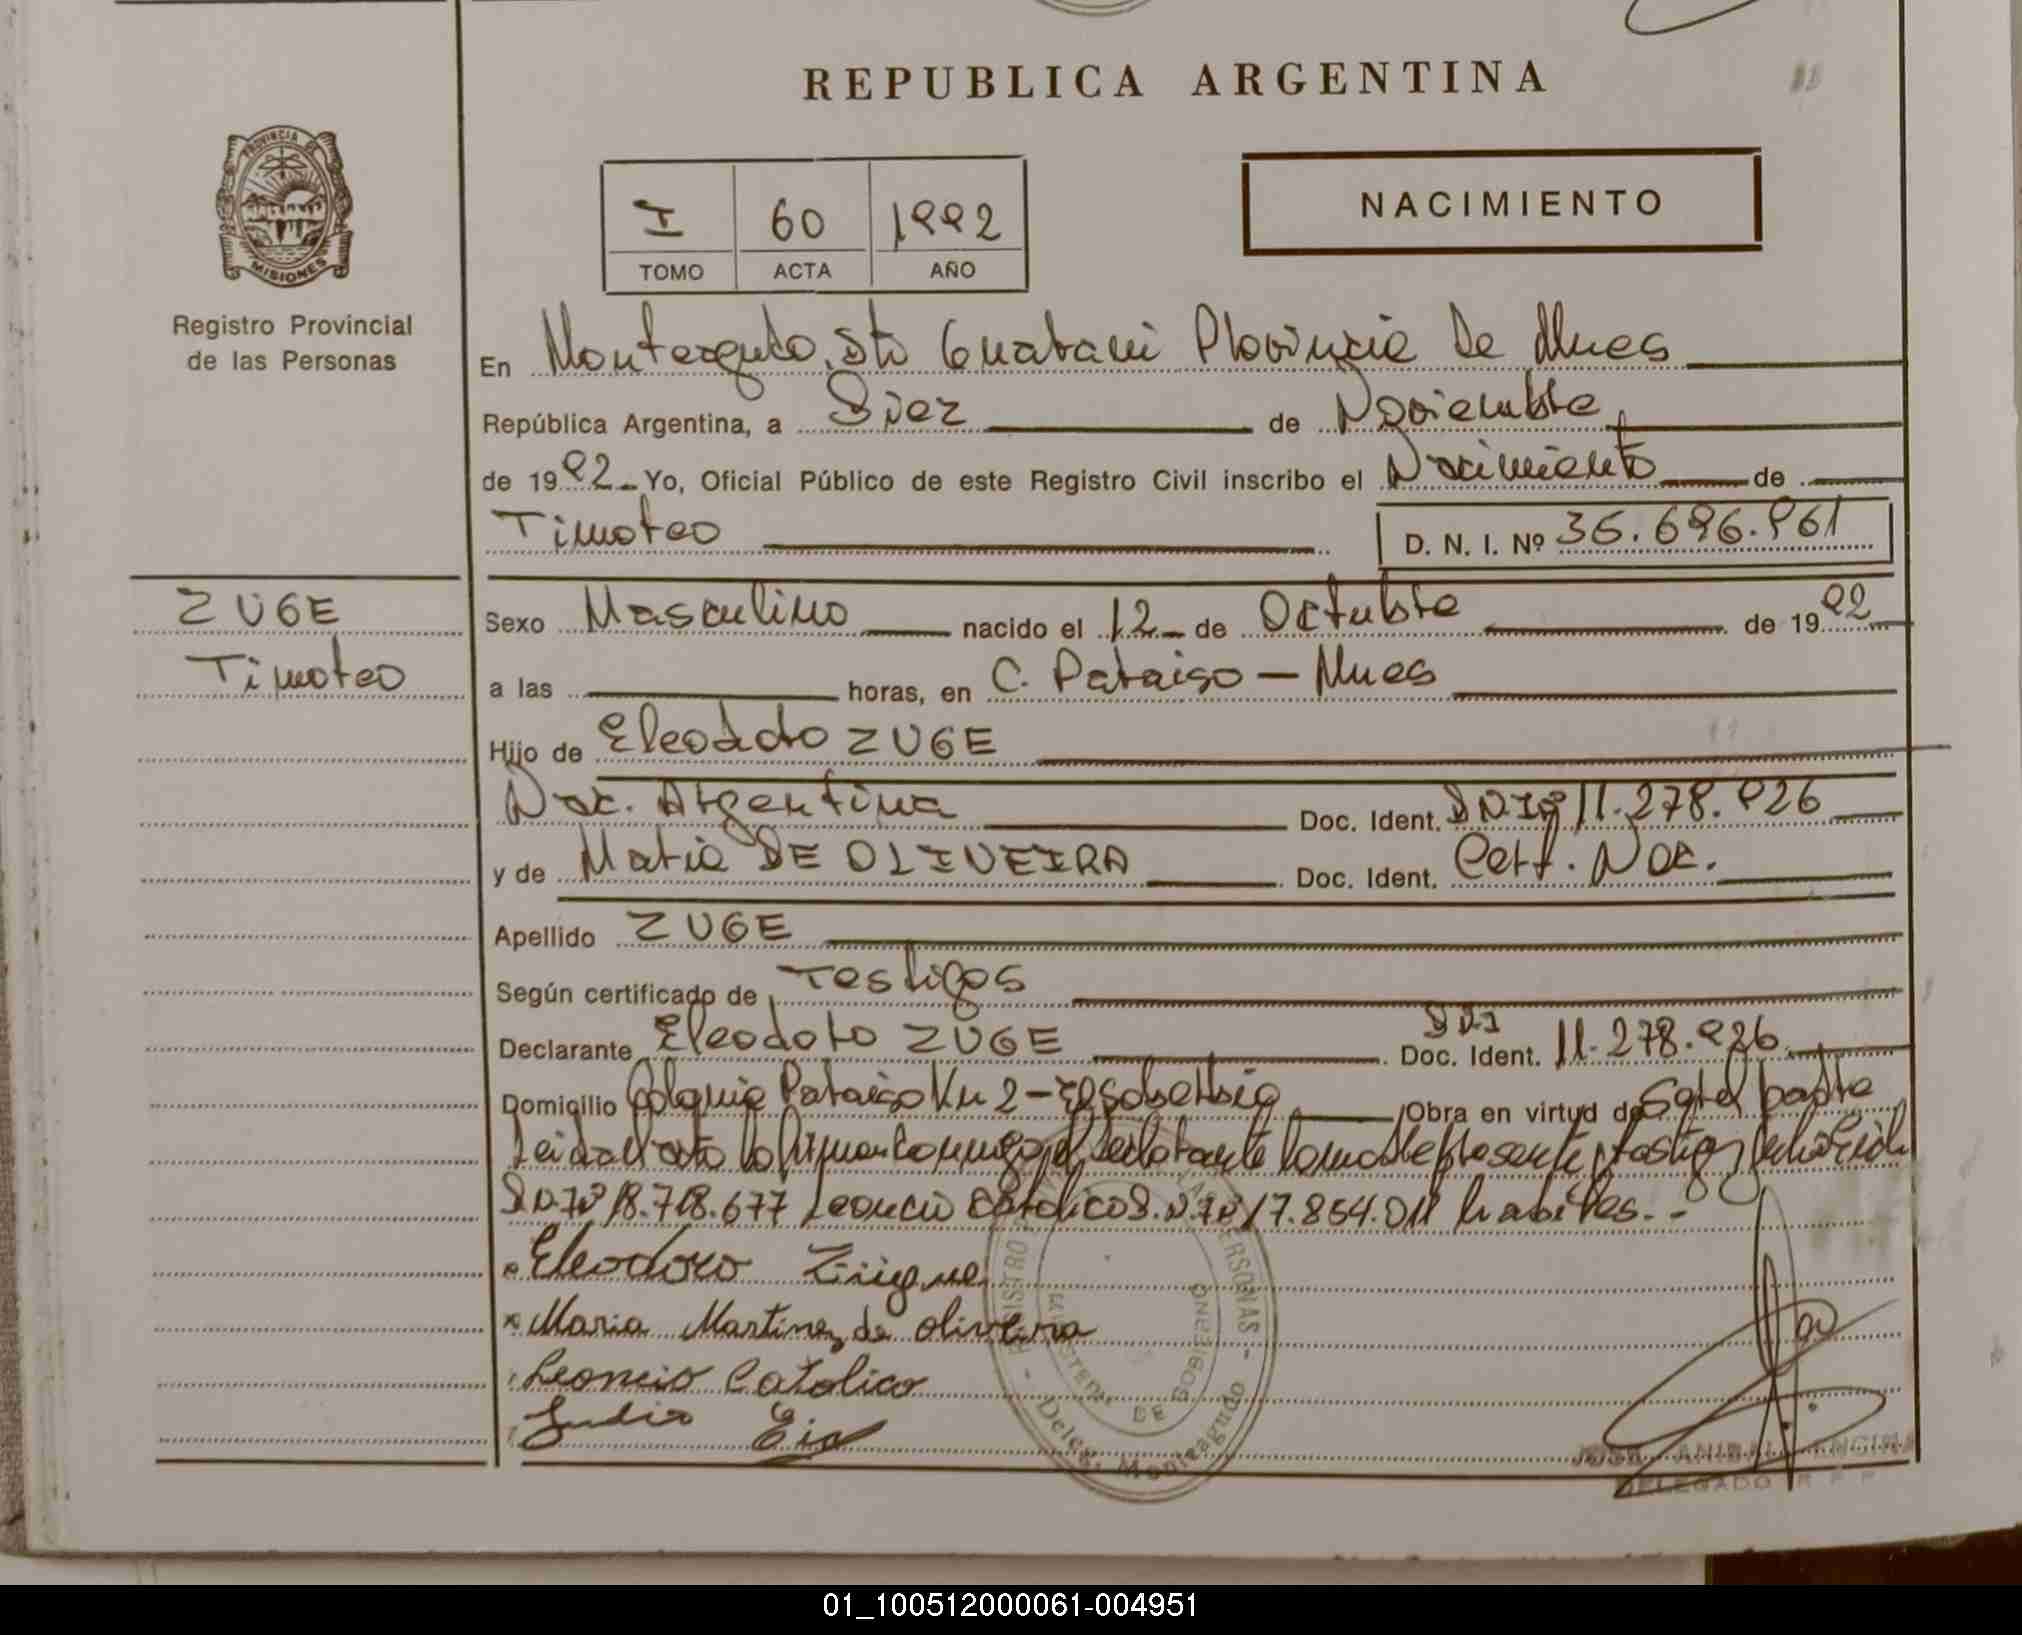 REPUBLICA ARGENTINA
PROVINCIA DE
MISIONES
Registro Provincial
de las Personas
I 60 1992
TOMO ACTA AÑO
NACIMIENTO
En Monteagudo, Dto Guarani Provincia De Mnes
República Argentina, a Diez de Noviembre
de 1992 Yo, Oficial Público de este Registro Civil inscribo el Nacimiento de
Timoteo D. N. I. Nº 36.696.961
ZUGE
Timoteo
Sexo Masculino nacido el 12 de Octubre de 1992
a las horas, en C. Paraiso - Mnes
Hijo de Eleodoro ZUGE
Nac. Argentina Doc. Ident. DNIº 11.278.926
y de Maria DE OLIVEIRA Doc. Ident. Cert. Nac.
Apellido ZUGE
Según certificado de Testigos
Declarante Eleodoro ZUGE Doc. Ident. DNI 11.278.926
Domicilio Colonia Paraiso Km 2 - El Soberbio Obra en virtud de Ser el padre
Leida el acta la firman conmigo el declarante la madre presente, testigos
18.718.677 Leoncio Catolico D.N.Iº 17.854.011 habiles.-
Eleodoro
x Maria Martinez de oliveira
Leoncio Catolico
REGISTRO PERSONAS
MINISTERIO DE GOBIERNO
Deleg. Monteagudo
JOSE ANIBAL
DELEGADO R P P
01_100512000061-004951